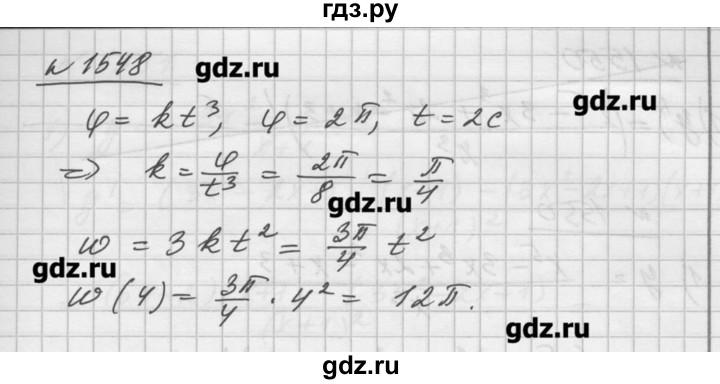 гдз.ру
№ 1548
gdz.ru
φ = kt³, φ = 2π, t = 2c
gdz.ru
=> k = φ/t³ = 2π/8 = π/4
gdz.ru
ω = 3kt² = 3π/4 t²
gdz.ru
ω(4) = 3π/4 · 4² = 12π.
gdz.ru
gdz.ru